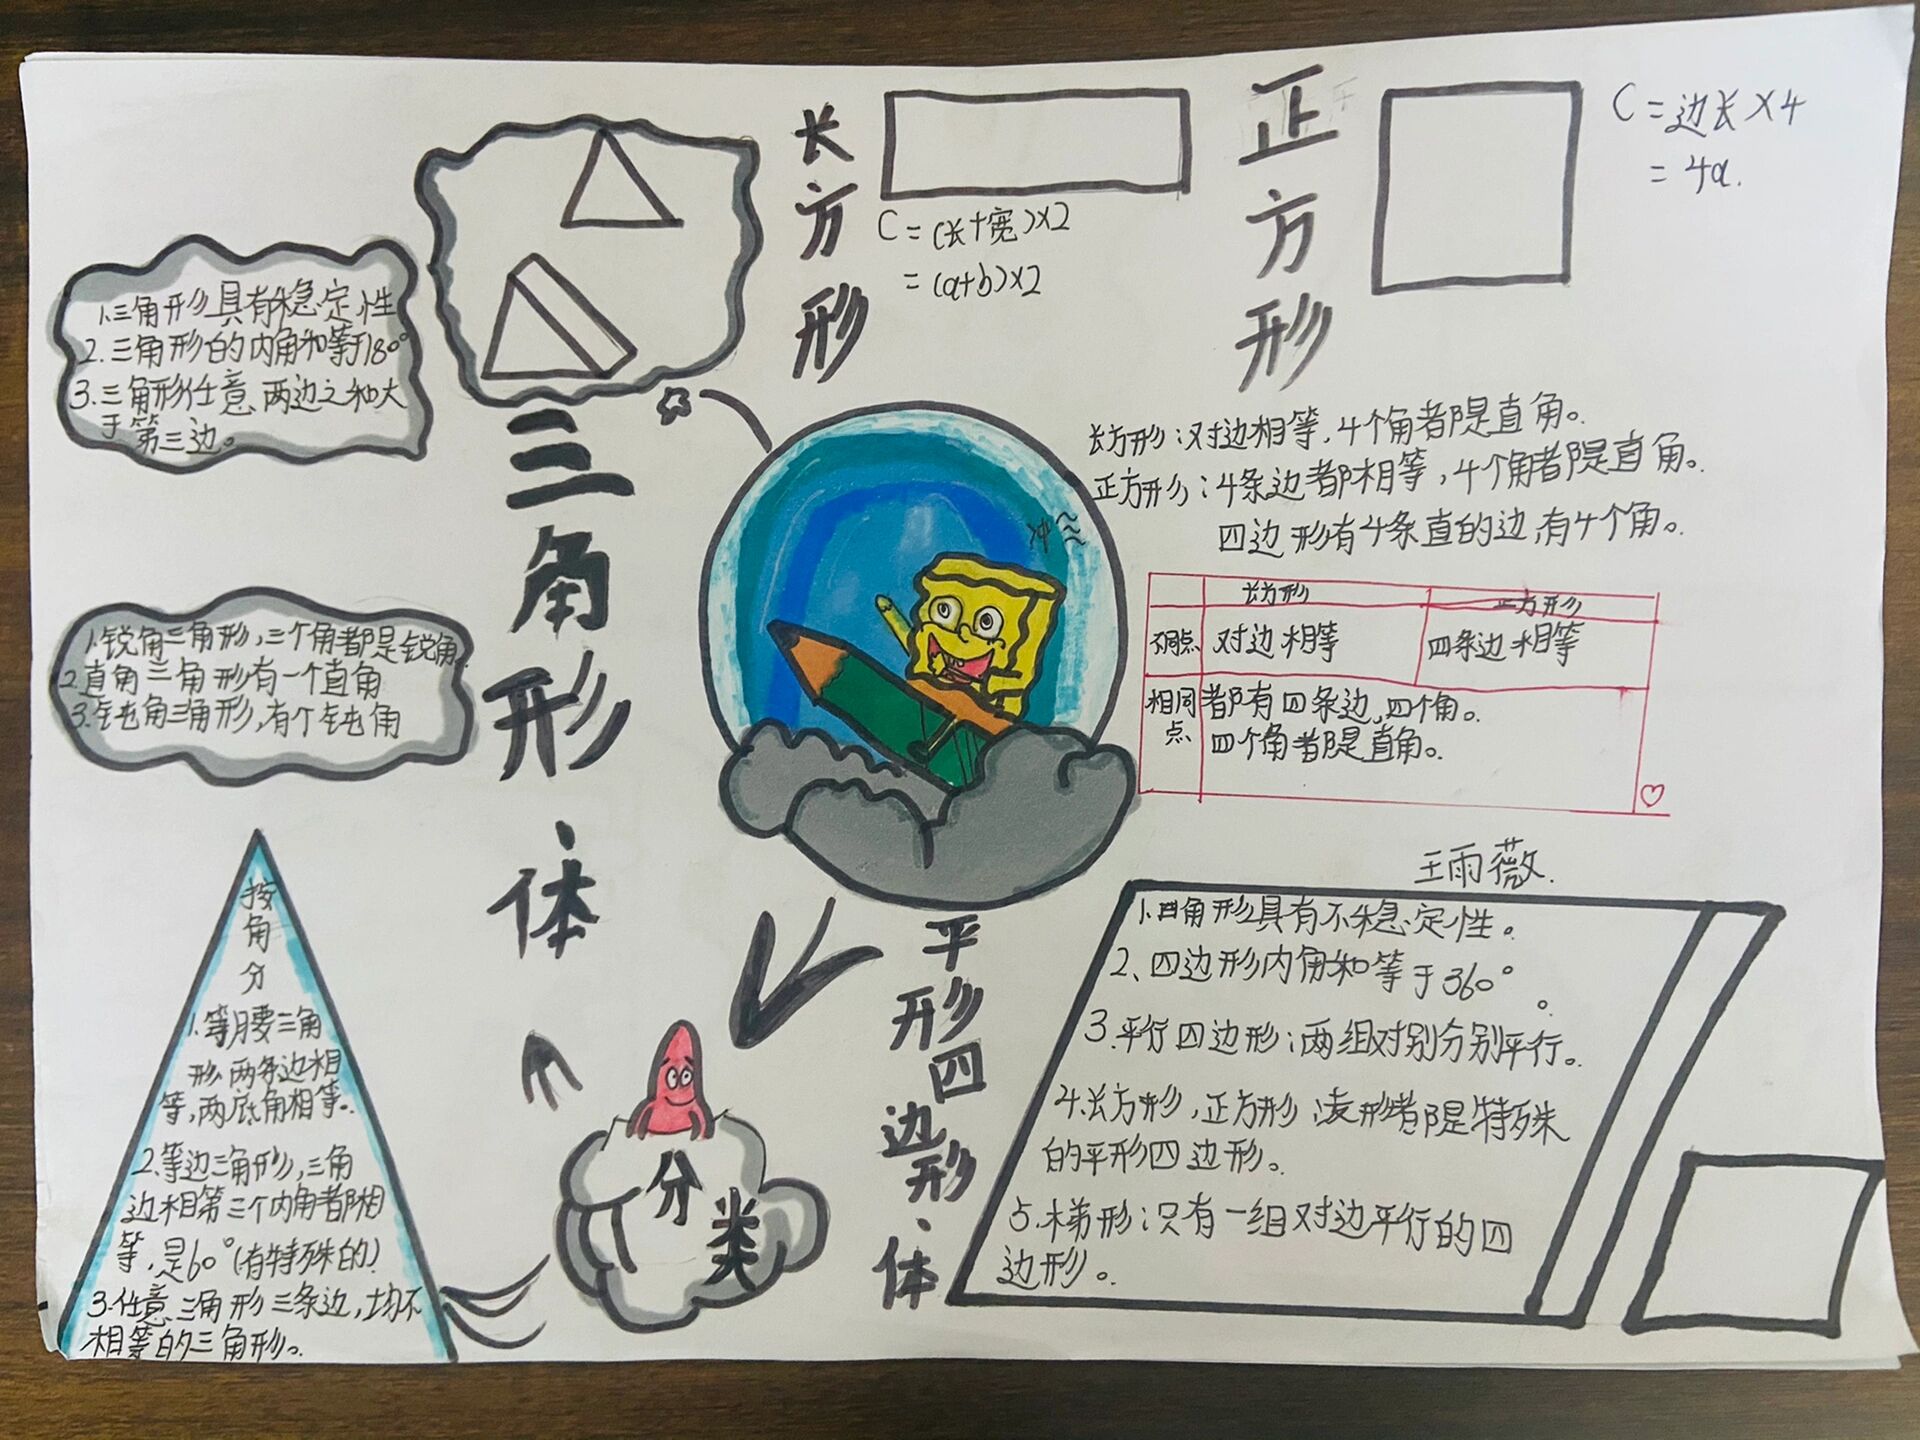 长方形
C=(长+宽)×2
=(a+b)×2
正方形
C=边长×4
=4a.
1.三角形具有稳定性
2.三角形的内角和等于180°
3.三角形任意两边之和大
于第三边。
三角形、体
1.锐角三角形,三个角都是锐角
2.直角三角形有一个直角
3.钝角三角形,有个钝角
按角分
1.等腰三角
形,两条边相
等,两底角相等。
2.等边三角形,三角
边相第三个内角都相
等,是60°(有特殊的)
3.任意三角形三条边,均不
相等的三角形。
冲
长方形:对边相等,4个角都是直角。
正方形:4条边都相等,4个角都是直角。
四边形有4条直的边,有4个角。
长方形 正方形
不同点 对边相等 四条边相等
相同点 都有四条边,四个角。
四个角都是直角。
王雨薇.
分类
平形四边形、体
1.四角形具有不稳定性。
2、四边形内角和等于360°。
3.平行四边形:两组对别分别平行。
4.长方形,正方形,凌形都是特殊
的平形四边形。
5.梯形:只有一组对边平行的四
边形。